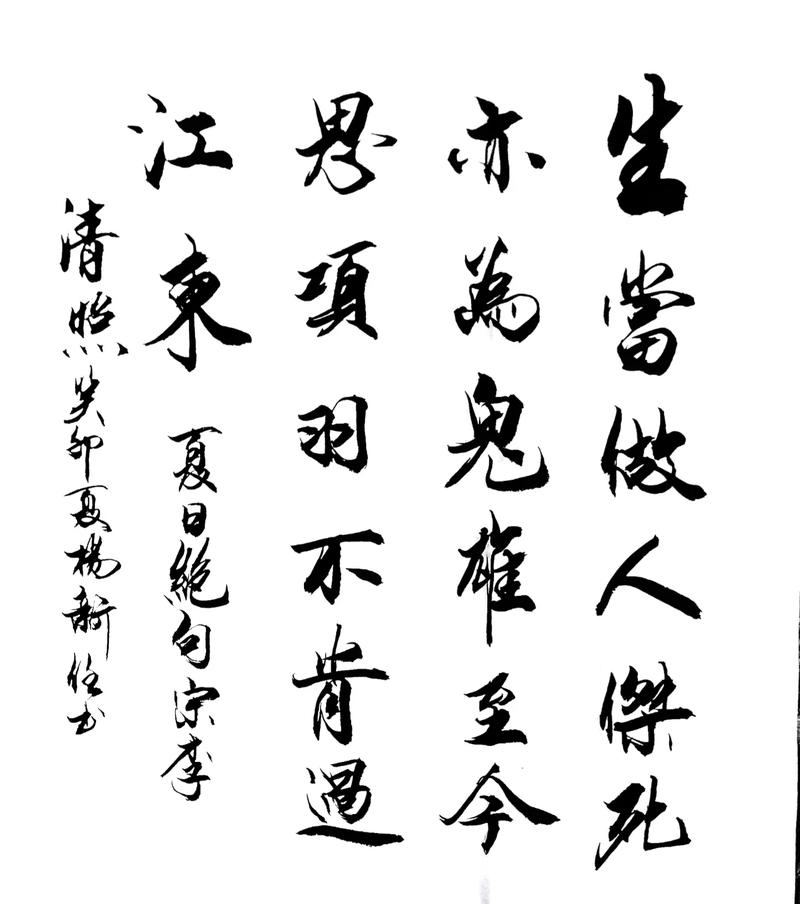 生當做人傑死
亦為鬼雄至今
思項羽不肯過
江東 夏日絕句宗李
清照癸卯夏楊新任书